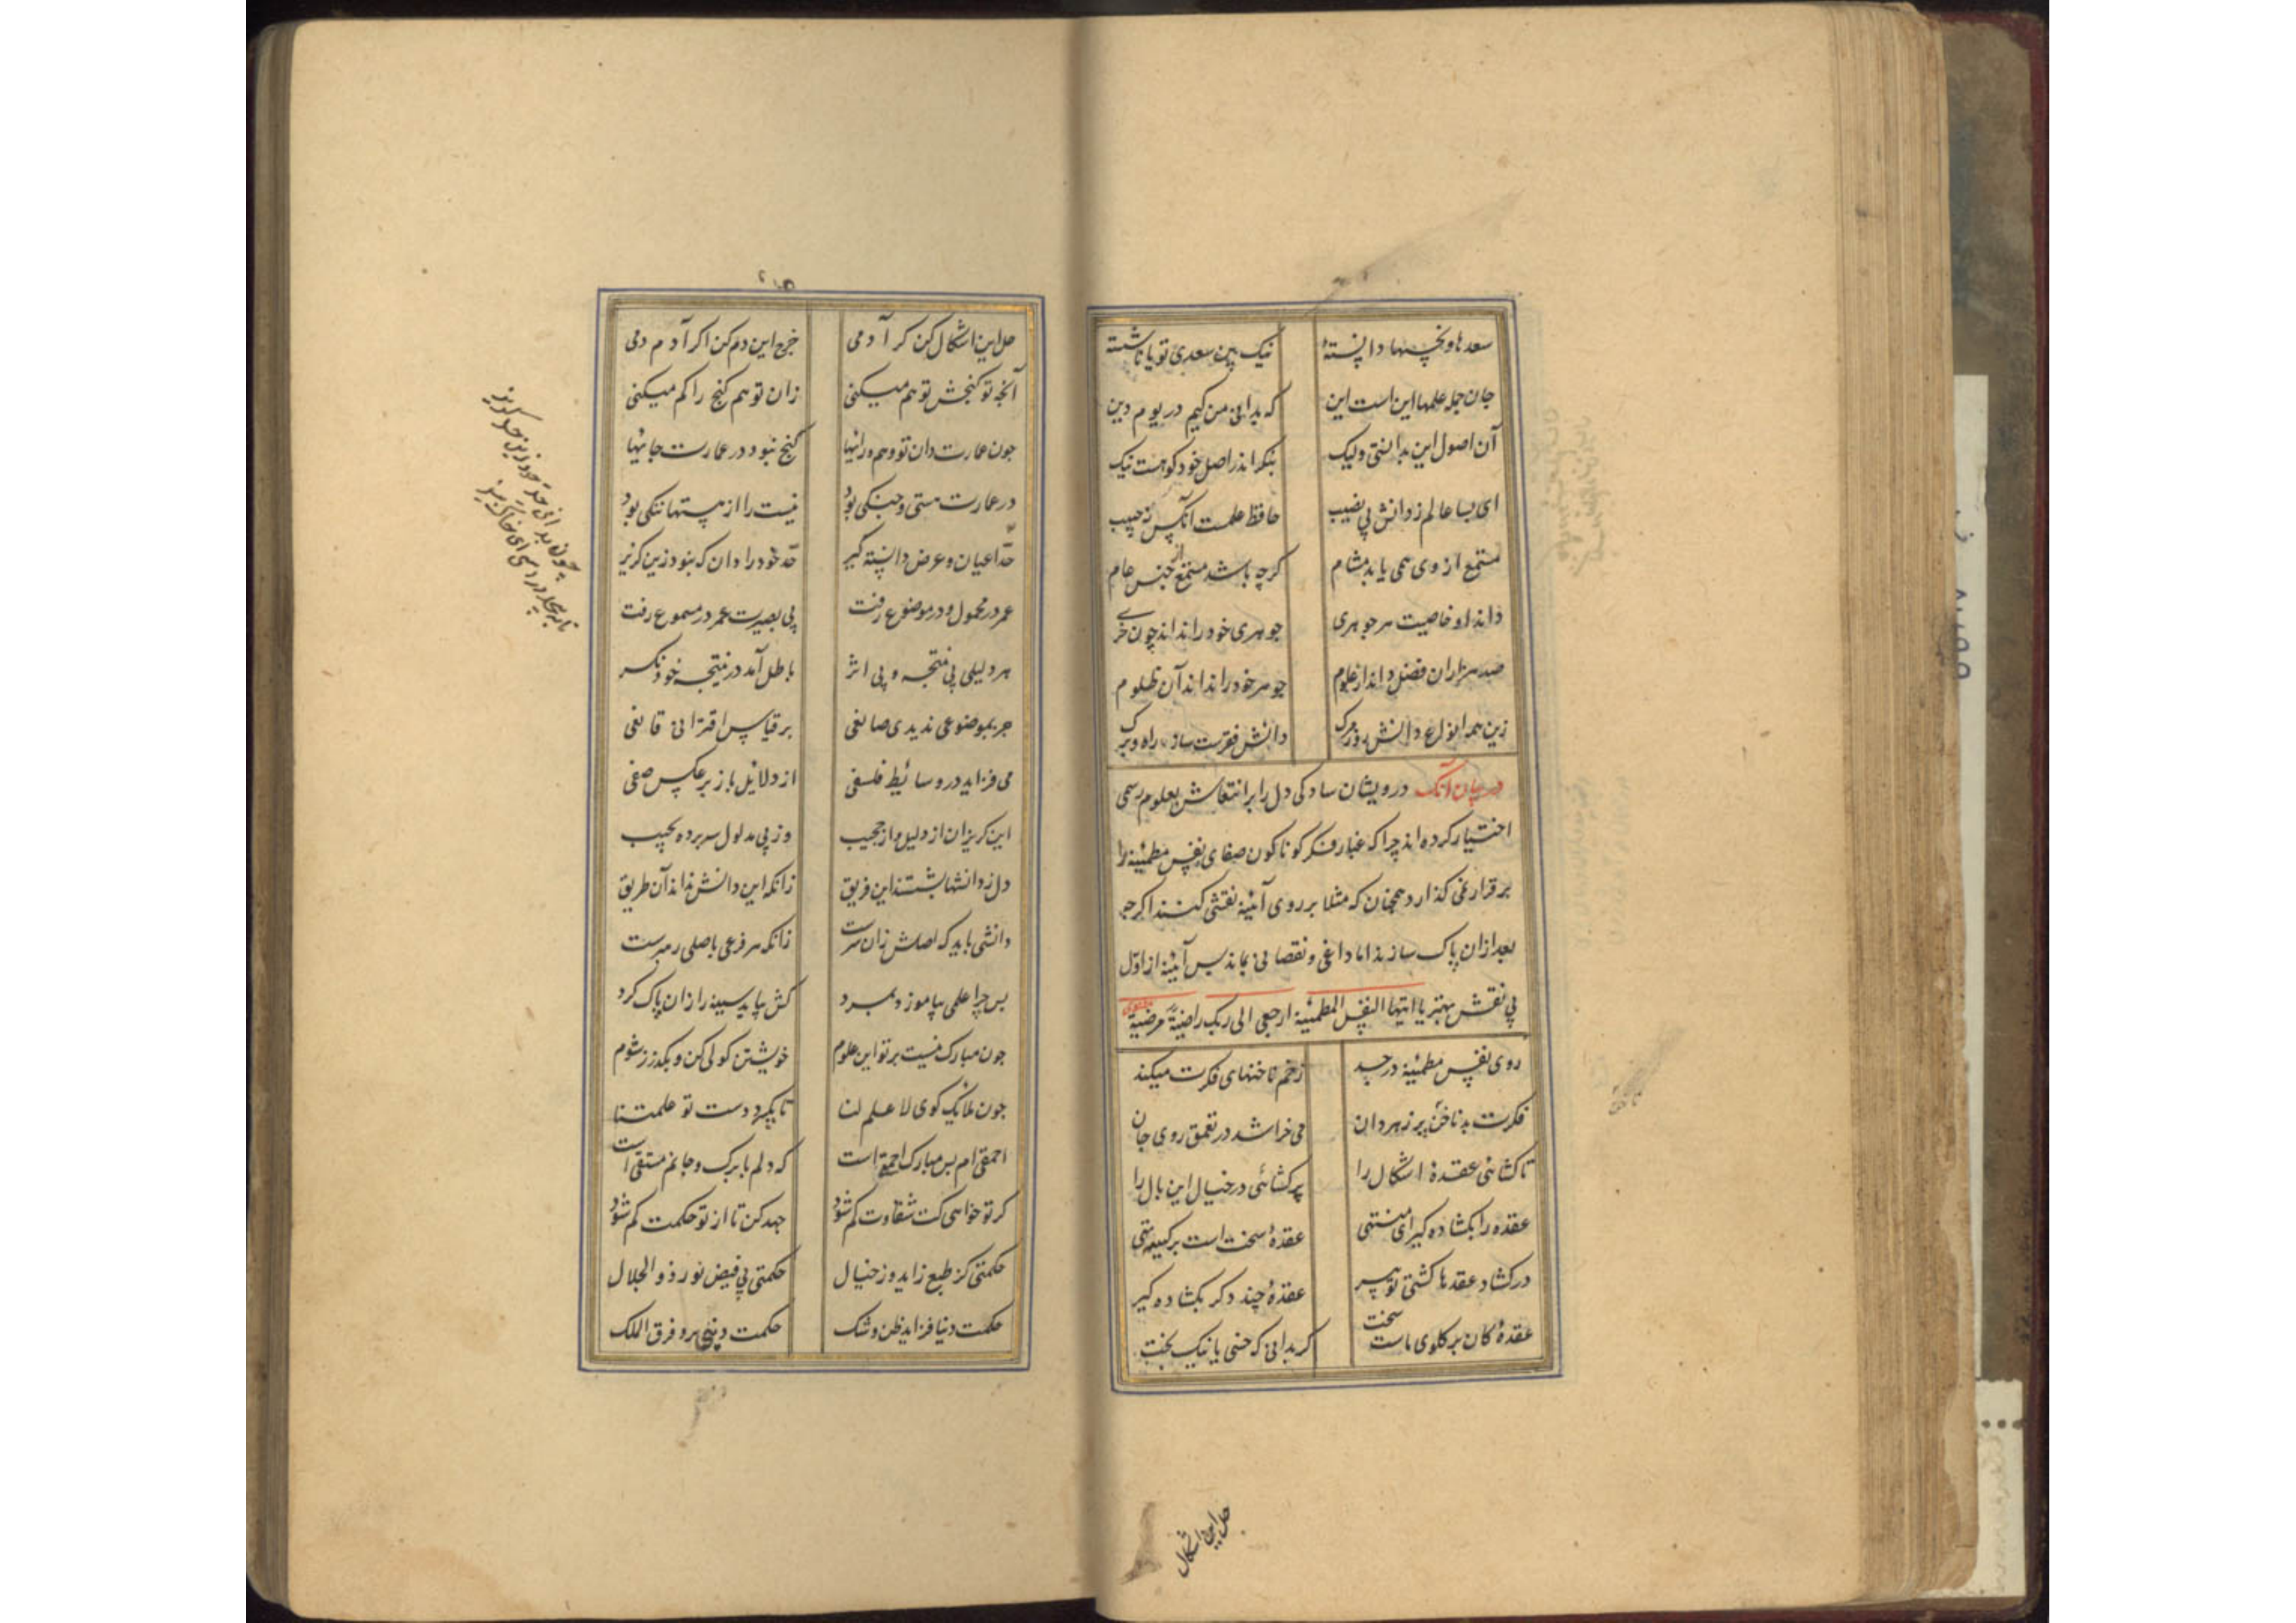 سعدها و نحسها دانسته نیک بین سعدی تو یا ناشسته
جان جمله علمها این است این که بدانی من کیم در یوم دین
آن اصول این بدانستی ولیک بنگر اندر اصل خود کو هست نیک
ای بسا عالم ز دانش بی نصیب حافظ علمست آنکس نه حبیب
مستمع از وی همی یابد مشام کرچه باشد مستمع از جنس عام
داند او خاصیت هر جوهری جوهری خود را نداند چون خری
صد هزاران فضل داند از علوم جوهر خود را نداند آن ظلوم
زین همه انواع دانش روز مرک دانش فقرست ساز راه و برک
در بیان آنک درویشان سادکی دل را بر انتعاش بعلوم رسمی
اختیار کرده اند چرا که غبار فکر کوناکون صفای نفس مطمئنه را
برقرار نمی کذارد همچنان که مثلا بر روی آئینه نقشی کنند اکرچه
بعد ازان پاک سازند اما داغی و نقصانی بماند پس آئینه از اول
بی نقش بهتر یا ایتها النفس المطمئنه ارجعی الی ربک راضیة مرضیة
روی نفس مطمئنه در جسد زخم ناخنهای فکرت میکند
فکرت بد ناخن پر زهر دان می خراشد در تعمق روی جان
تا کشائی عقدهٔ اشکال را پر کشائی در خیال این بال را
عقده را بکشاده کیر ای منتهی عقدهٔ سخت است بر کیسه تهی
در کشاد عقدها کشتی تو پیر عقدهٔ چند دکر بکشاده کیر
عقدهٔ کان بر کلوی ماست سخت کر بدانی که خسی یا نیک بخت
حل این اشکال
حل این اشکال کن کر آدمی خرج این دم کن اکر آدم دمی
آنچه تو کنجش توهم میکنی زان توهم کنج را کم میکنی
چون عمارت دان تو وهم و رایها کنج نبود در عمارت جایها
در عمارت هستی و جنکی بود نیست را از هستها ننکی بود
حد اعیان و عرض دانسته کیر حد خود را دان که نبود زین کزیر
عمر در محمول و در موضوع رفت بی بصیرت عمر در مسموع رفت
هر دلیلی بی نتیجه و بی اثر باطل آمد در نتیجه خود نکر
جز بموضوعی ندیدی صانعی بر قیاس اقترانی قانعی
می فزاید در وسائط فلسفی از دلایل باز بر عکس صفی
این کریزان از دلیل و از حجیب وز پی مدلول سر برده بجیب
دل ز دانشها بشستند این فریق زانکه این دانش نداند آن طریق
دانشی باید که اصلش زان سرست زانکه هر فرعی باصلی رهبرست
پس چرا علمی بیاموز و بمرد کش بباید سینه را زان پاک کرد
چون مبارک نیست بر تو این علوم خویشتن کولی کن و بکذر ز شوم
چون ملائک کوی لا علم لنا تا بکیرد دست تو علمتنا
احمقی ام بس مبارک احمقی است که دلم با برک و جانم متقی است
کر تو خواهی کت شقاوت کم شود جهد کن تا از تو حکمت کم شود
حکمتی کز طبع زاید وز خیال حکمتی بی فیض نور ذو الجلال
حکمت دنیا فزاید ظن و شک حکمت دینی برد فوق الفلک
چون بدانی حد خود زین حد کریز
تا به بیحد در رسی ای خاک بیز